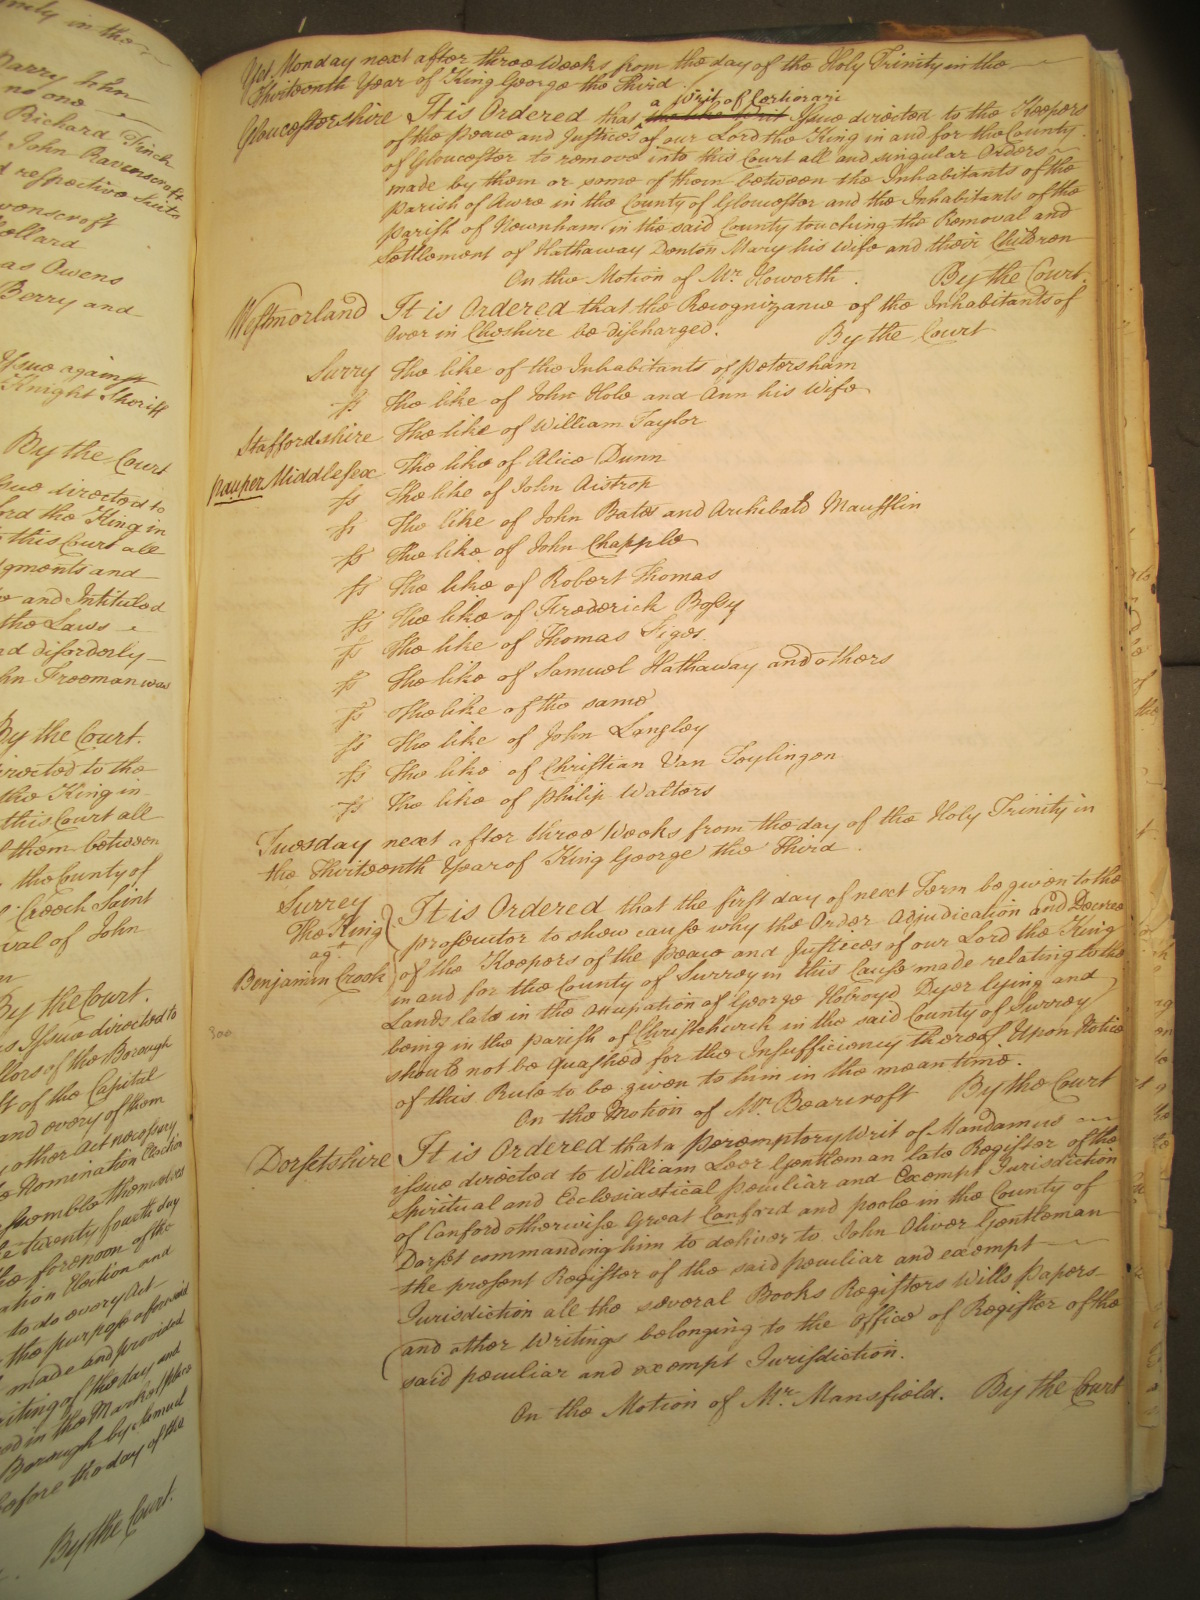 mely in the
Parry John
no one
Richard Finch
John Ravenscroft
d respective Suits
venscroft
ollard
as Owens
Berry and
Issue against
Knight Sheriff
By the Court
sue directed to
ord the King in
this Court all
gments and
e and Intituled
the Laws
nd disorderly
hn Freeman was
By the Court.
irected to the
the King in
this Court all
f them between
the County of
Creech Saint
val of John
By the Court.
s Issue directed to
llors of the Borough
st of the Capital
and every of them
other Act necessary
Nomination Election
ssemble themselves
e twenty fourth day
he forenoon of the
ation Election and
to do every Act
the purpose aforesaid
made and provided
riting of the day and
ed in the Market place
Borough by Samuel
before the day of the
By the Court.
Yet Monday next after three Weeks from the day of the Holy Trinity in the
Thirteenth Year of King George the Third.
a Writ of Certiorari
Gloucestershire It is Ordered that the like Writ Issue directed to the Keepers
of the peace and Justices of our Lord the King in and for the County
of Gloucester to remove into this Court all and singular Orders
made by them or some of them between the Inhabitants of the
Parish of Awre in the County of Gloucester and the Inhabitants of the
parish of Newnham in the said County touching the Removal and
Settlement of Hathaway Denton Mary his Wife and their Children
On the Motion of Mr. Howorth. By the Court.
Westmorland It is Ordered that the Recognizance of the Inhabitants of
Over in Cheshire be discharged. By the Court
Surry The like of the Inhabitants of Petersham
ss The like of John Hole and Ann his Wife
Staffordshire The like of William Taylor
Pauper Middlesex The like of Alice Dunn
ss The like of John Aistrop
ss The like of John Bates and Archibald Maufflin
ss The like of John Chapple
ss The like of Robert Thomas
ss The like of Frederick Bossy
ss The like of Thomas Siges.
ss The like of Samuel Hathaway and others
ss The like of the same
ss The like of John Langley
ss The like of Christian Van Toylingen
ss The like of Philip Walters
Tuesday next after three Weeks from the day of the Holy Trinity in
the Thirteenth Year of King George the Third.
Surrey It is Ordered that the first day of next Term be given to the
The King prosecutor to show cause why the Order Adjudication and Decree
agt. of the Keepers of the Peace and Justices of our Lord the King
Benjamin Crook in and for the County of Surrey in this Cause made relating to the
Lands late in the occupation of George Holroyd Dyer lying and
being in the parish of Christchurch in the said County of Surrey
should not be quashed for the Insufficiency thereof Upon Notice
of this Rule to be given to him in the mean time.
On the Motion of Mr. Bearcroft By the Court
Dorsetshire It is Ordered that a peremptory Writ of Mandamus
issue directed to William Leer Gentleman late Register of the
Spiritual and Ecclesiastical peculiar and Exempt Jurisdiction
of Canford otherwise Great Canford and poole in the County of
Dorset commanding him to deliver to John Oliver Gentleman
the present Register of the said peculiar and exempt
Jurisdiction all the several Books Registers Wills Papers
and other Writings belonging to the Office of Register of the
said peculiar and exempt Jurisdiction.
On the Motion of Mr. Mansfield. By the Court